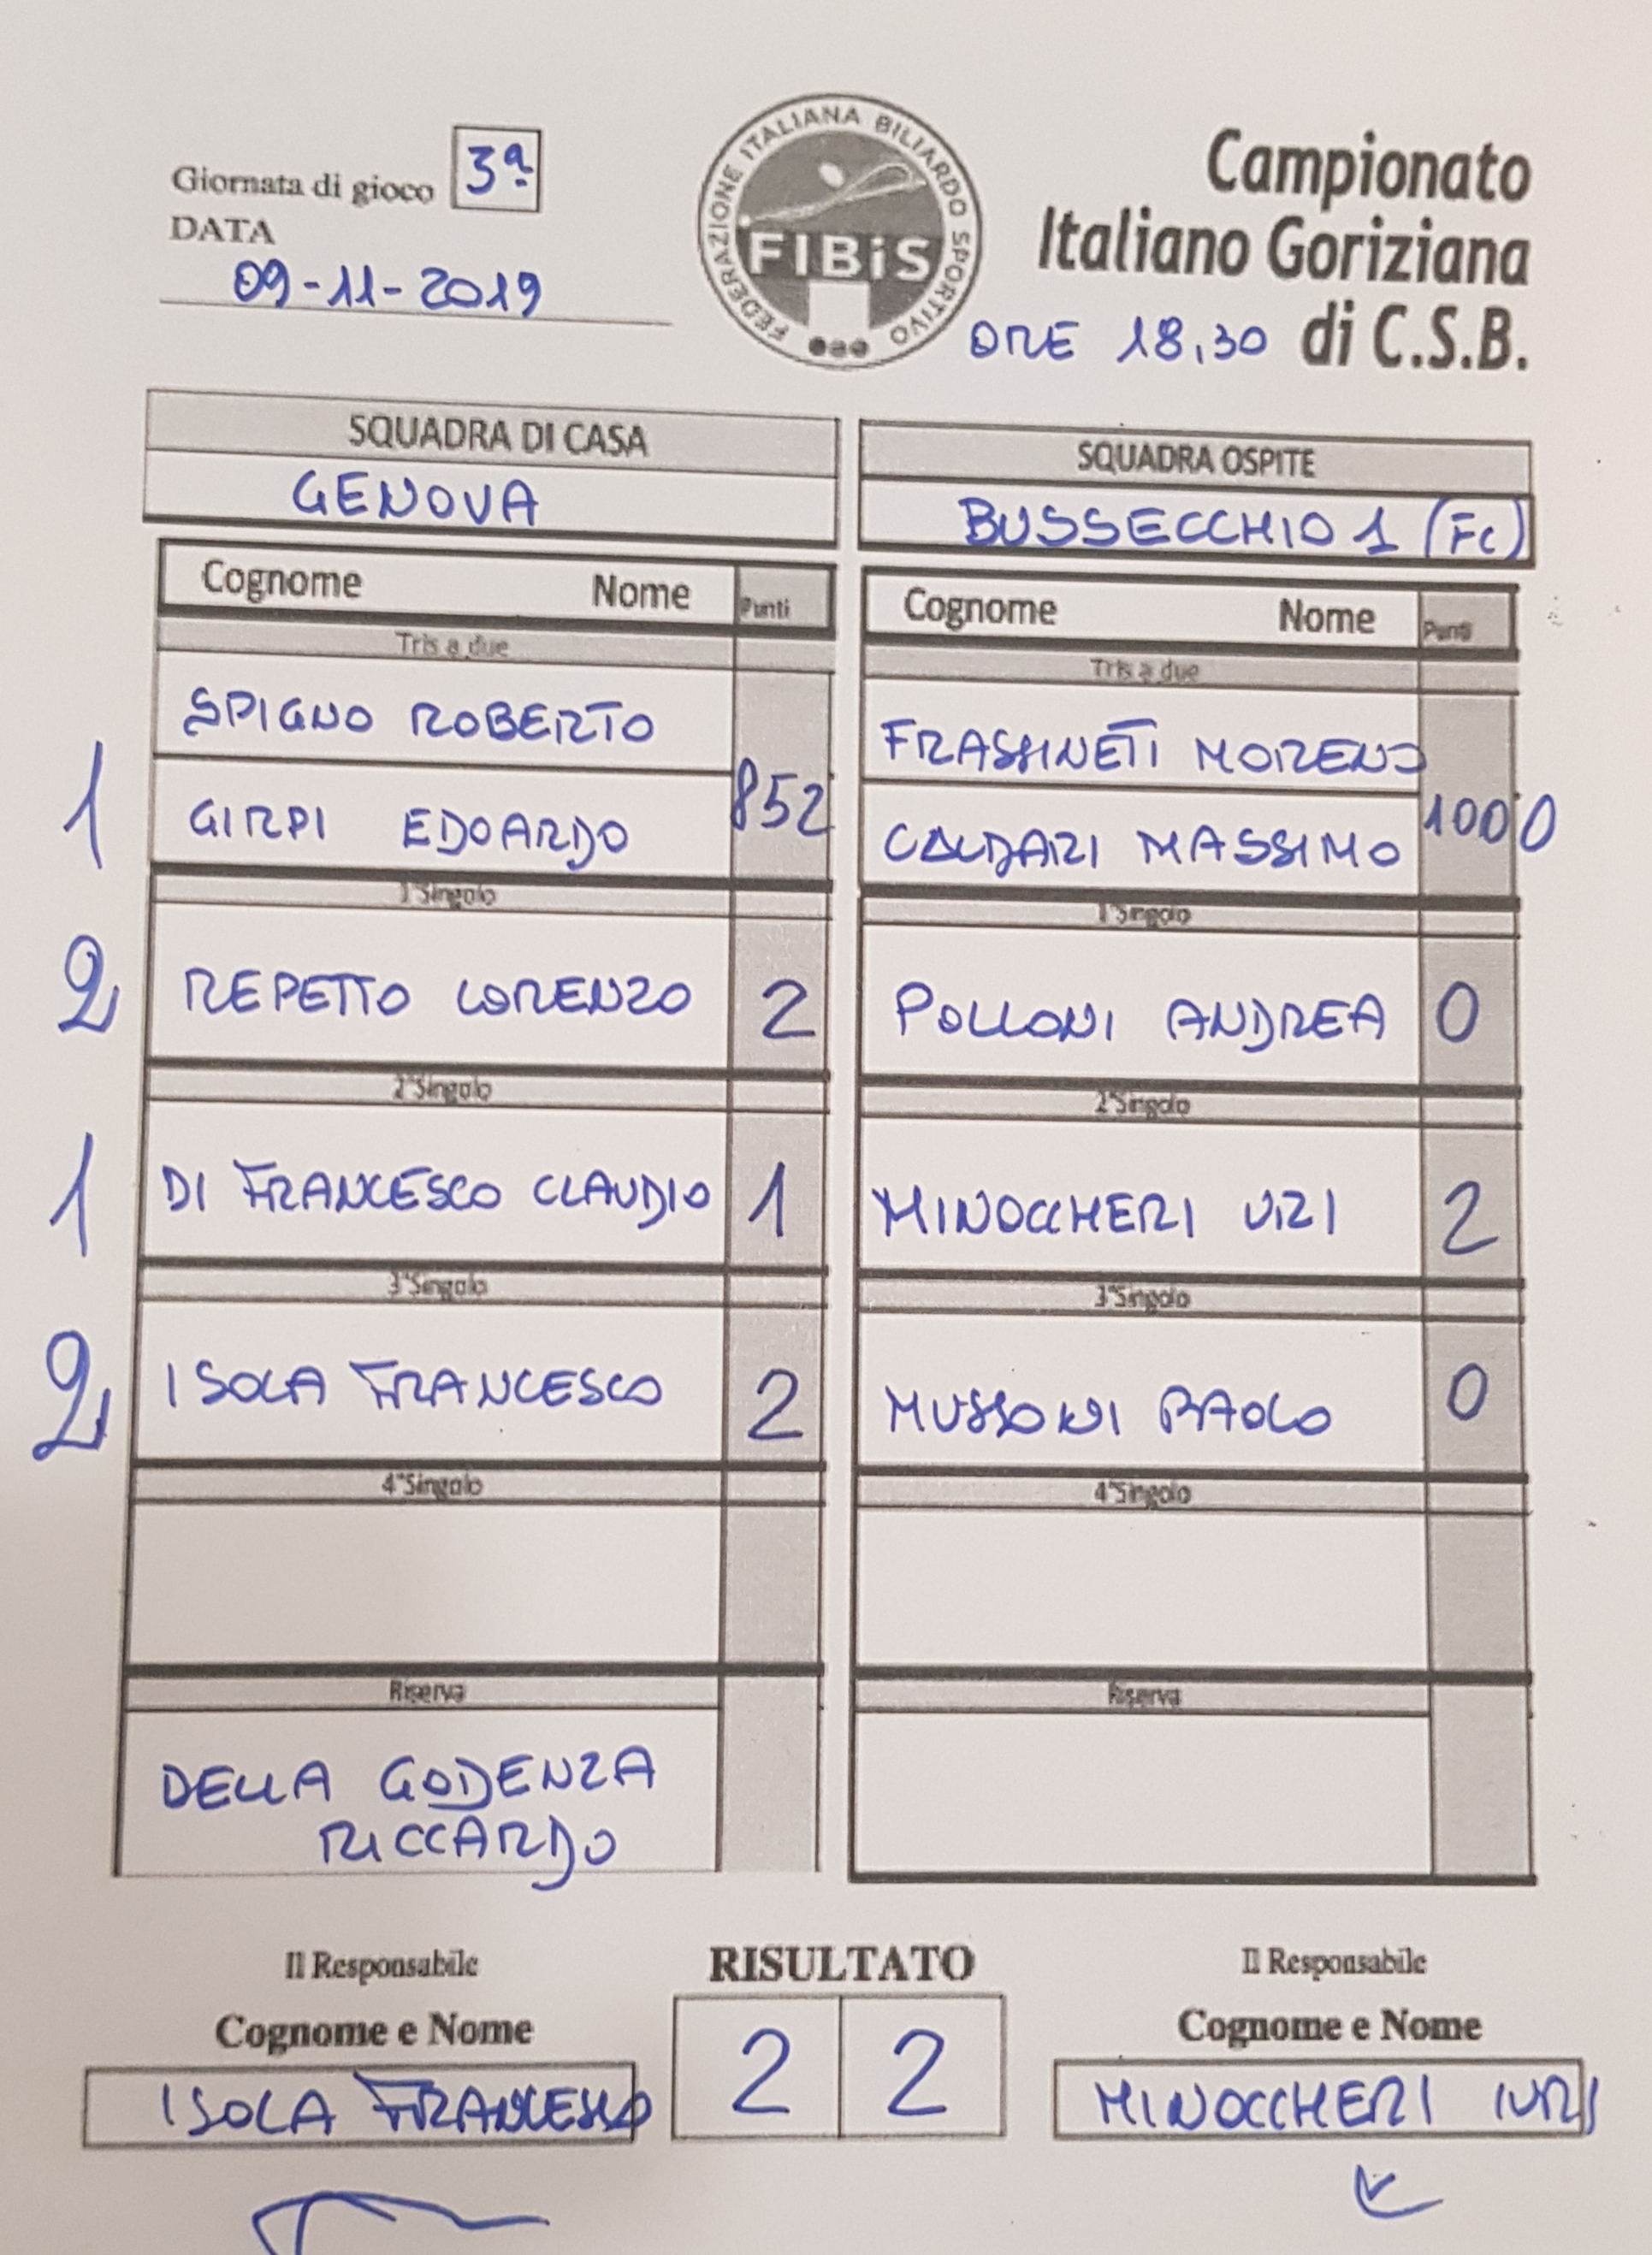 Giornata di gioco 3ª
DATA
09-11-2019
FEDERAZIONE ITALIANA BILIARDO SPORTIVO
FIBiS
Campionato
Italiano Goriziana
di C.S.B.
ORE 18,30
SQUADRA DI CASA
GENOVA
SQUADRA OSPITE
BUSSECCHIO 1 (FC)
Cognome Nome Punti
Tris a due
SPIGNO ROBERTO
1 GIRPI EDOARDO 852
1°Singolo
2 REPETTO LORENZO 2
2°Singolo
1 DI FRANCESCO CLAUDIO 1
3°Singolo
2 ISOLA FRANCESCO 2
4°Singolo
Riserva
DELLA GODENZA
RICCARDO
Cognome Nome Punti
Tris a due
FRASSINETI MORENO
CALDARI MASSIMO 1000
1°Singolo
POLLONI ANDREA 0
2°Singolo
MINOCCHERI URI 2
3°Singolo
MUSSONI PAOLO 0
4°Singolo
Riserva
Il Responsabile
Cognome e Nome
ISOLA FRANCESCO
RISULTATO
2 2
Il Responsabile
Cognome e Nome
MINOCCHERI IURI